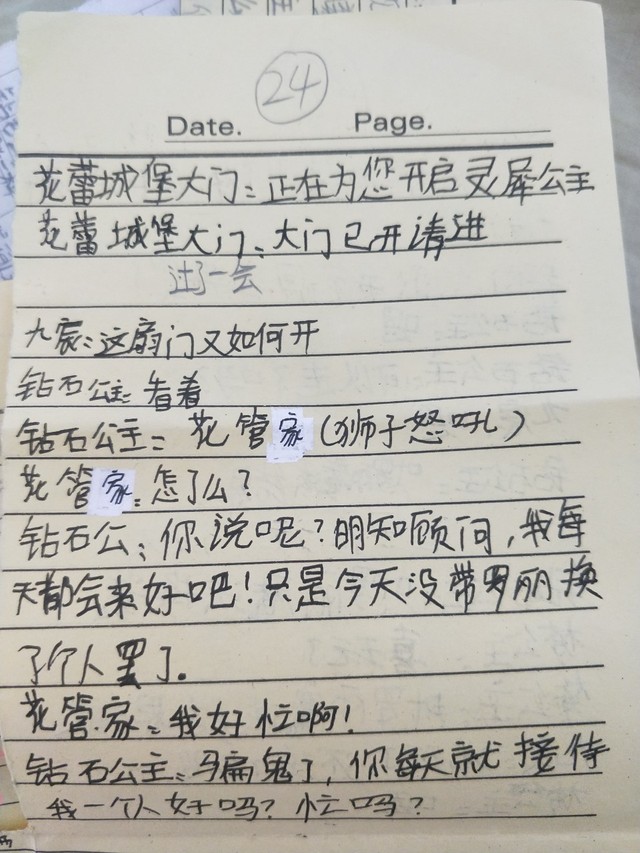 24
Date. Page.
花蕾城堡大门：正在为您开启灵犀公主
花蕾城堡大门：大门已开请进
过了一会
九宸：这扇门又如何开
钻石公主：看着
钻石公主：花管家（狮子怒吼）
花管家：怎么了？
钻石公：你说呢？明知顾问，我每
天都会来好吧！只是今天没带罗丽换
了个人罢了.
花管家：我好忙啊！
钻石公主：骗鬼了，你每天就接待
我一个人好吗？忙吗？